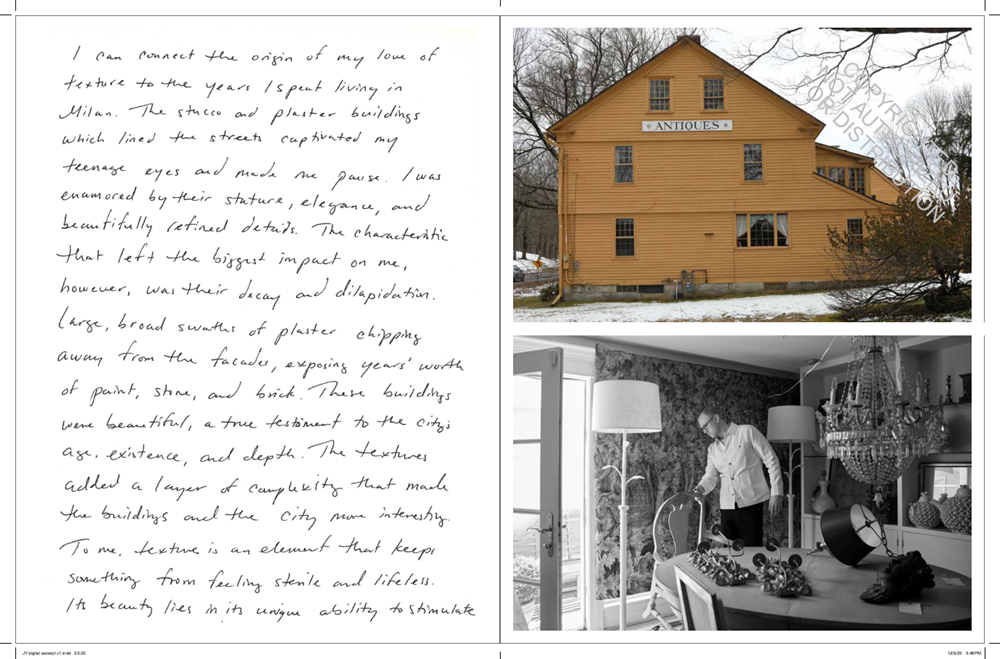 I can connect the origin of my love of
texture to the years I spent living in
Milan. The stucco and plaster buildings
which lined the streets captivated my
teenage eyes and made me pause. I was
enamored by their stature, elegance, and
beautifully refined details. The characteristic
that left the biggest impact on me,
however, was their decay and dilapidation.
Large, broad swaths of plaster chipping
away from the facades, exposing years' worth
of paint, stone, and brick. These buildings
were beautiful, a true testament to the city's
age, existence, and depth. The textures
added a layer of complexity that made
the buildings and the city more interesting.
To me, texture is an element that keeps
something from feeling sterile and lifeless.
Its beauty lies in its unique ability to stimulate
ANTIQUES
NOT AUTHORIZED
FOR DISTRIBUTION
JY digital excerpt v1.indd 22-23
3:48 PM